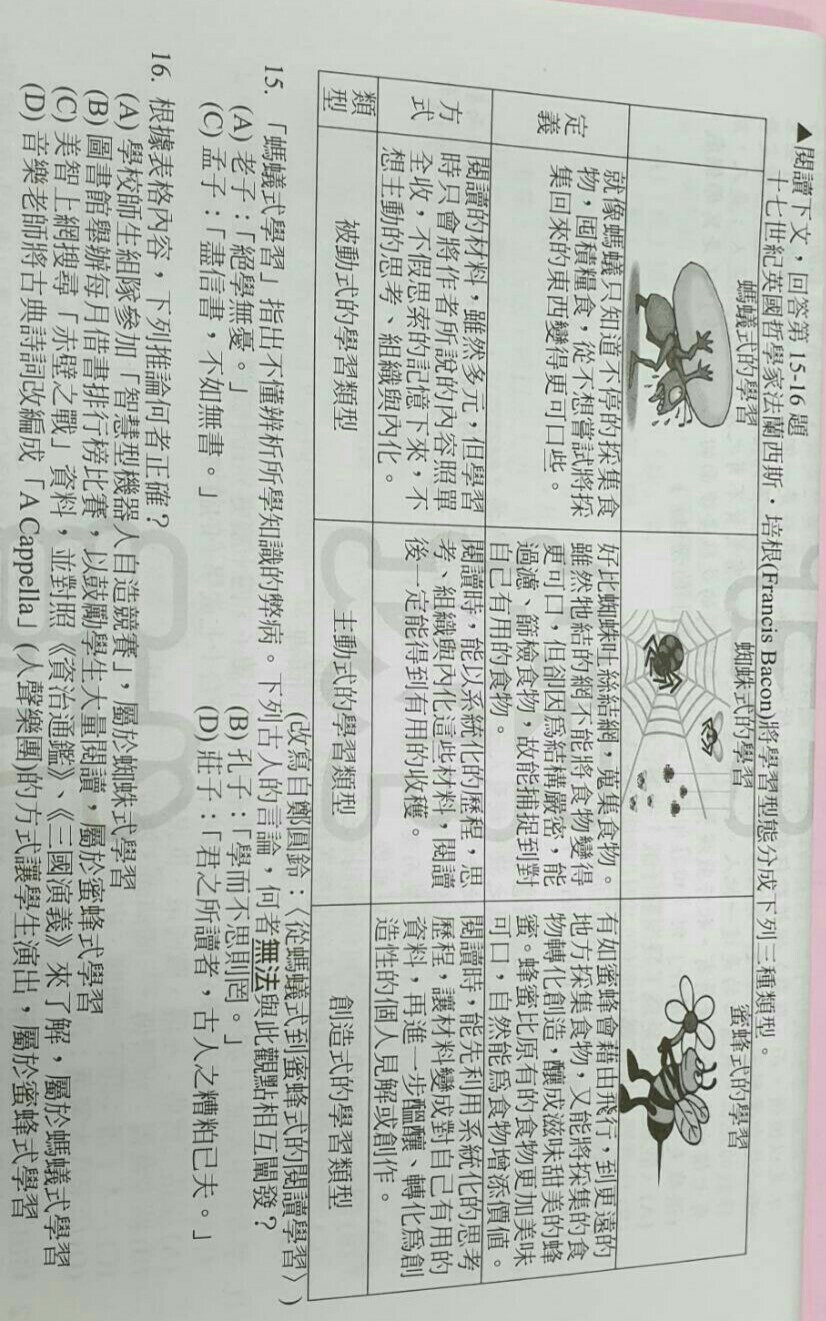 ▲閱讀下文，回答第 15-16 題
十七世紀英國哲學家法蘭西斯·培根(Francis Bacon)將學習型態分成下列三種類型。
螞蟻式的學習
蜘蛛式的學習
蜜蜂式的學習
定義
就像螞蟻只知道不停的採集食
物，囤積糧食，從不想嘗試將採
集回來的東西變得更可口些。
好比蜘蛛吐絲結網，蒐集食物。
雖然牠結的網不能將食物變得
更可口，但卻因為結構嚴密，能
過濾、篩檢食物，故能捕捉到對
自己有用的食物。
有如蜜蜂會藉由飛行，到更遠的
地方採集食物，又能將採集的食
物轉化創造，釀成滋味甜美的蜂
蜜。蜂蜜比原有的食物更加美味
可口，自然能為食物增添價值。
方式
閱讀的材料，雖然多元，但學習
時只會將作者所說的內容照單
全收，不假思索的記憶下來，不
想主動的思考、組織與內化。
閱讀時，能以系統化的歷程，思
考、組織與內化這些材料，閱讀
後一定能得到有用的收穫。
閱讀時，能先利用系統化的思考
歷程，讓材料變成對自己有用的
資料，再進一步醞釀、轉化為創
造性的個人見解或創作。
類型
被動式的學習類型
主動式的學習類型
創造式的學習類型
(改寫自鄭圓鈴：〈從螞蟻式到蜜蜂式的閱讀學習〉)
15. 「螞蟻式學習」指出不懂辨析所學知識的弊病。下列古人的言論，何者無法與此觀點相互闡發？
(A) 老子：「絕學無憂。」
(B) 孔子：「學而不思則罔。」
(C) 孟子：「盡信書，不如無書。」
(D) 莊子：「君之所讀者，古人之糟粕已夫。」
16. 根據表格內容，下列推論何者正確？
(A) 學校師生組隊參加「智慧型機器人自造競賽」，屬於蜘蛛式學習
(B) 圖書館舉辦每月借書排行榜比賽，以鼓勵學生大量閱讀，屬於蜜蜂式學習
(C) 美智上網搜尋「赤壁之戰」資料，並對照《資治通鑑》、《三國演義》來了解，屬於螞蟻式學習
(D) 音樂老師將古典詩詞改編成「A Cappella」(人聲樂團)的方式讓學生演出，屬於蜜蜂式學習